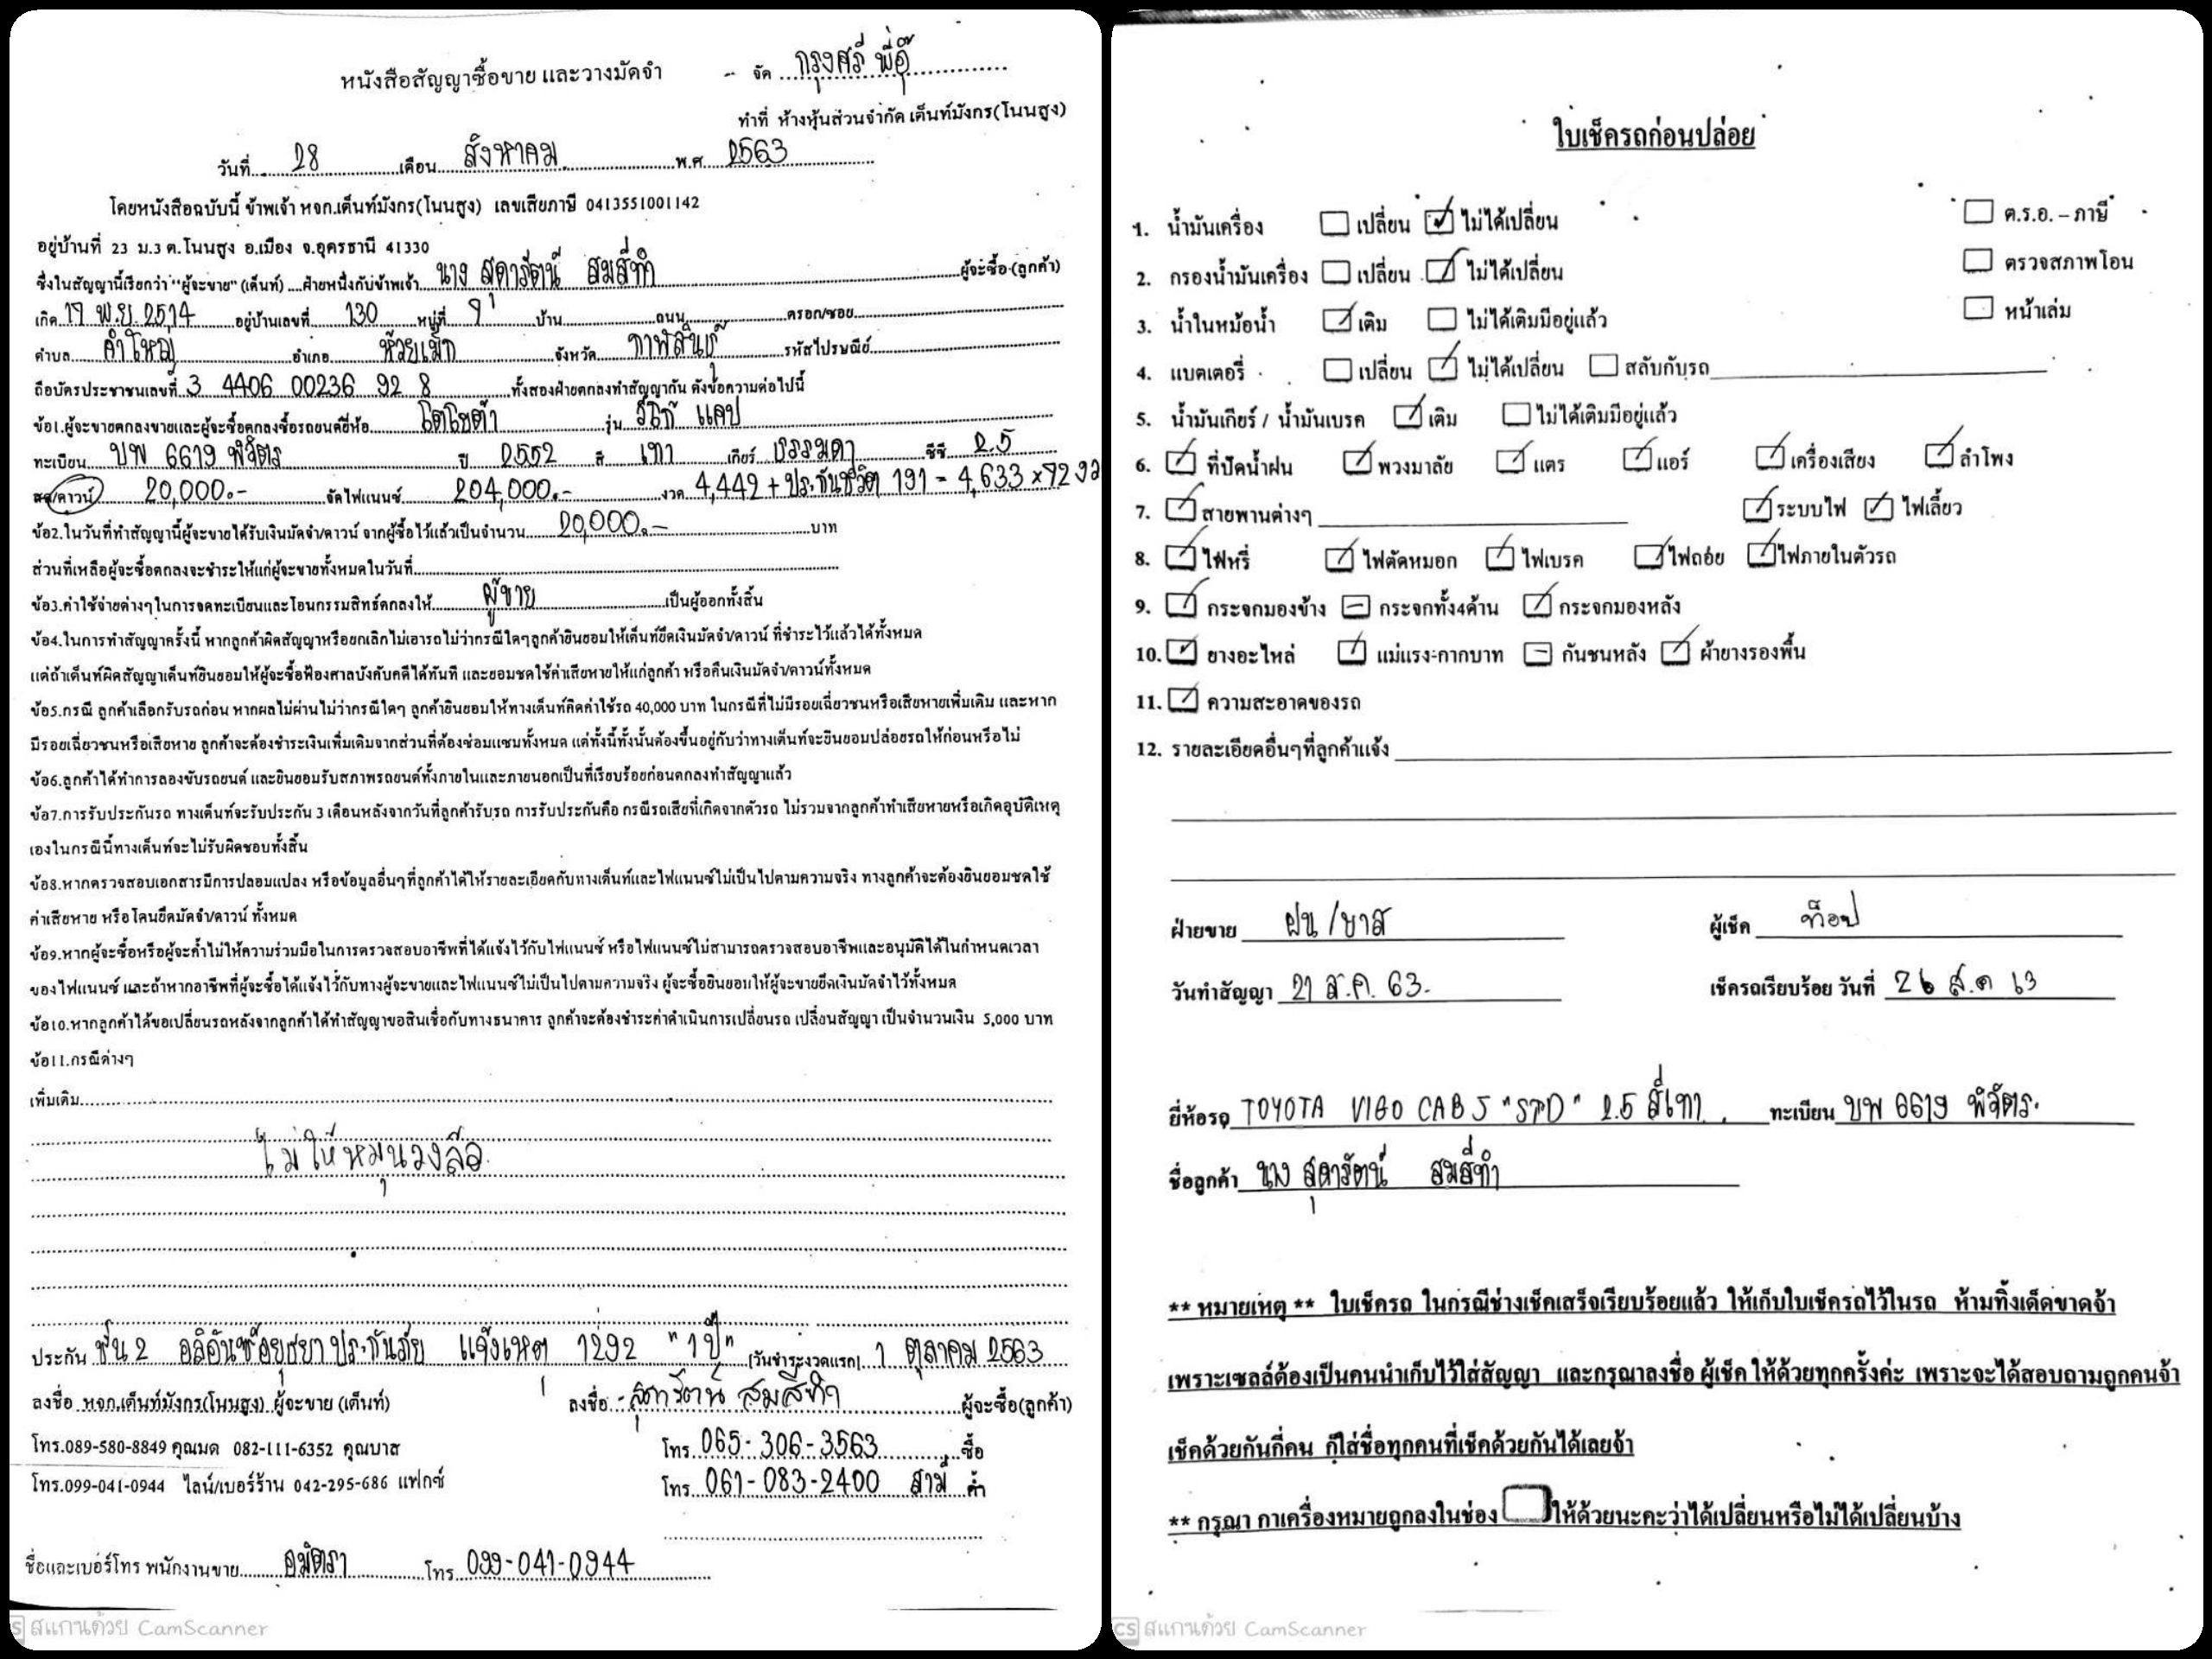 หนังสือสัญญาซื้อขาย และวางมัดจำ - จัด กรุงศรี พี่อุ๊
ทำที่ ห้างหุ้นส่วนจำกัด เต็นท์มังกร(โนนสูง)
วันที่ 28 เดือน สิงหาคม พ.ศ. 2563
โดยหนังสือฉบับนี้ ข้าพเจ้า หจก.เต็นท์มังกร(โนนสูง) เลขเสียภาษี 0413551001142
อยู่บ้านที่ 23 ม.3 ต.โนนสูง อ.เมือง จ.อุดรธานี 41330
ซึ่งในสัญญานี้เรียกว่า "ผู้จะขาย" (เต็นท์) ....ฝ่ายหนึ่งกับข้าพเจ้า นาง สุดารัตน์ สมสีทำ ผู้จะซื้อ (ลูกค้า)
เกิด 19 พ.ย. 2514 อยู่บ้านเลขที่ 130 หมู่ที่ 9 บ้าน ถนน ตรอก/ซอย
ตำบล คำใหญ่ อำเภอ ห้วยเม็ก จังหวัด กาฬสินธุ์ รหัสไปรษณีย์
ถือบัตรประชาชนเลขที่ 3 4406 00236 92 8 ทั้งสองฝ่ายตกลงทำสัญญากัน ดังข้อความต่อไปนี้
ข้อ1.ผู้จะขายตกลงขายและผู้จะซื้อตกลงซื้อรถยนต์ยี่ห้อ โตโยต้า รุ่น วีโก้ แคป
ทะเบียน บพ 6619 พิจิตร ปี 2552 สี เทา เกียร์ ธรรมดา ซีซี 2.5
สด/ดาวน์ 20,000.- จัดไฟแนนซ์ 204,000.- งวด 4,442 + ประกันชีวิต 191 = 4,633 x 72 งวด
ข้อ2.ในวันที่ทำสัญญานี้ผู้จะขายได้รับเงินมัดจำ/ดาวน์ จากผู้ซื้อไว้แล้วเป็นจำนวน 20,000.- บาท
ส่วนที่เหลือผู้จะซื้อตกลงจะชำระให้แก่ผู้จะขายทั้งหมดในวันที่
ข้อ3.ค่าใช้จ่ายต่างๆในการจดทะเบียนและโอนกรรมสิทธ์ตกลงให้ ผู้ขาย เป็นผู้ออกทั้งสิ้น
ข้อ4.ในการทำสัญญาครั้งนี้ หากลูกค้าผิดสัญญาหรือยกเลิกไม่เอารถไม่ว่ากรณีใดๆลูกค้ายินยอมให้เต็นท์ยึดเงินมัดจำ/ดาวน์ ที่ชำระไว้แล้วได้ทั้งหมด
แต่ถ้าเต็นท์ผิดสัญญาเต็นท์ยินยอมให้ผู้จะซื้อฟ้องศาลบังคับคดีได้ทันที และยอมชดใช้ค่าเสียหายให้แก่ลูกค้า หรือคืนเงินมัดจำ/ดาวน์ทั้งหมด
ข้อ5.กรณี ลูกค้าเลือกรับรถก่อน หากผลไม่ผ่านไม่ว่ากรณีใดๆ ลูกค้ายินยอมให้ทางเต็นท์คิดค่าใช้รถ 40,000 บาท ในกรณีที่ไม่มีรอยเฉี่ยวชนหรือเสียหายเพิ่มเติม และหาก
มีรอยเฉี่ยวชนหรือเสียหาย ลูกค้าจะต้องชำระเงินเพิ่มเติมจากส่วนที่ต้องซ่อมแซมทั้งหมด แต่ทั้งนี้ทั้งนั้นต้องขึ้นอยู่กับว่าทางเต็นท์จะยินยอมปล่อยรถให้ก่อนหรือไม่
ข้อ6.ลูกค้าได้ทำการลองขับรถยนต์ และยินยอมรับสภาพรถยนต์ทั้งภายในและภายนอกเป็นที่เรียบร้อยก่อนตกลงทำสัญญาแล้ว
ข้อ7.การรับประกันรถ ทางเต็นท์จะรับประกัน 3 เดือนหลังจากวันที่ลูกค้ารับรถ การรับประกันคือ กรณีรถเสียที่เกิดจากตัวรถ ไม่รวมจากลูกค้าทำเสียหายหรือเกิดอุบัติเหตุ
เองในกรณีนี้ทางเต็นท์จะไม่รับผิดชอบทั้งสิ้น
ข้อ8.หากตรวจสอบเอกสารมีการปลอมแปลง หรือข้อมูลอื่นๆที่ลูกค้าได้ให้รายละเอียดกับทางเต็นท์และไฟแนนซ์ไม่เป็นไปตามความจริง ทางลูกค้าจะต้องยินยอมชดใช้
ค่าเสียหาย หรือโดนยึดมัดจำ/ดาวน์ ทั้งหมด
ข้อ9.หากผู้จะซื้อหรือผู้จะค้ำไม่ให้ความร่วมมือในการตรวจสอบอาชีพที่ได้แจ้งไว้กับไฟแนนซ์ หรือไฟแนนซ์ไม่สามารถตรวจสอบอาชีพและอนุมัติได้ในกำหนดเวลา
ของไฟแนนซ์ และถ้าหากอาชีพที่ผู้จะซื้อได้แจ้งไว้กับทางผู้จะขายและไฟแนนซ์ไม่เป็นไปตามความจริง ผู้จะซื้อยินยอมให้ผู้จะขายยึดเงินมัดจำไว้ทั้งหมด
ข้อ10.หากลูกค้าได้ขอเปลี่ยนรถหลังจากลูกค้าได้ทำสัญญาขอสินเชื่อกับทางธนาคาร ลูกค้าจะต้องชำระค่าดำเนินการเปลี่ยนรถ เปลี่ยนสัญญา เป็นจำนวนเงิน 5,000 บาท
ข้อ11.กรณีต่างๆ
เพิ่มเติม
ไม่ให้หมุนวงล้อ
ประกัน ชั้น 2 อลิอันซ์อยุธยาประกันภัย แจ้งเหตุ 1292 "1 ปี" (วันชำระงวดแรก) 1 ตุลาคม 2563
ลงชื่อ หจก.เต็นท์มังกร(โนนสูง) ผู้จะขาย (เต็นท์) ลงชื่อ สุดารัตน์ สมสีทำ ผู้จะซื้อ(ลูกค้า)
โทร.089-580-8849 คุณมด 082-111-6352 คุณบาส โทร. 065-306-3563 ซื้อ
โทร.099-041-0944 ไลน์/เบอร์ร้าน 042-295-686 แฟกซ์ โทร. 061-083-2400 สามี ค้ำ
ชื่อและเบอร์โทร พนักงานขาย โทร. 099-041-0944
CS สแกนด้วย CamScanner
ใบเช็ครถก่อนปล่อย
1. น้ำมันเครื่อง เปลี่ยน ไม่ได้เปลี่ยน ต.ร.อ. – ภาษี
2. กรองน้ำมันเครื่อง เปลี่ยน ไม่ได้เปลี่ยน ตรวจสภาพโอน
3. น้ำในหม้อน้ำ เติม ไม่ได้เติมมีอยู่แล้ว หน้าเล่ม
4. แบตเตอรี่ เปลี่ยน ไม่ได้เปลี่ยน สลับกับรถ
5. น้ำมันเกียร์ / น้ำมันเบรค เติม ไม่ได้เติมมีอยู่แล้ว
6. ที่ปัดน้ำฝน พวงมาลัย แตร แอร์ เครื่องเสียง ลำโพง
7. สายพานต่างๆ ระบบไฟ ไฟเลี้ยว
8. ไฟหรี่ ไฟตัดหมอก ไฟเบรค ไฟถอย ไฟภายในตัวรถ
9. กระจกมองข้าง กระจกทั้ง4ด้าน กระจกมองหลัง
10. ยางอะไหล่ แม่แรง-กากบาท กันชนหลัง ผ้ายางรองพื้น
11. ความสะอาดของรถ
12. รายละเอียดอื่นๆที่ลูกค้าแจ้ง
ฝ่ายขาย ฝน/บาส ผู้เช็ค ท็อป
วันทำสัญญา 21 ส.ค. 63. เช็ครถเรียบร้อย วันที่ 26 ส.ค 63
ยี่ห้อรถ TOYOTA VIGO CAB J "STD" 2.5 สีเทา ทะเบียน บพ 6619 พิจิตร.
ชื่อลูกค้า นาง สุดารัตน์ สมสีทำ
** หมายเหตุ ** ใบเช็ครถ ในกรณีช่างเช็คเสร็จเรียบร้อยแล้ว ให้เก็บใบเช็ครถไว้ในรถ ห้ามทิ้งเด็ดขาดจ้า
เพราะเซลล์ต้องเป็นคนนำเก็บไว้ใส่สัญญา และกรุณาลงชื่อ ผู้เช็ค ให้ด้วยทุกครั้งค่ะ เพราะจะได้สอบถามถูกคนจ้า
เช็คด้วยกันกี่คน ก็ใส่ชื่อทุกคนที่เช็คด้วยกันได้เลยจ้า
** กรุณา กาเครื่องหมายถูกลงในช่อง ให้ด้วยนะคะว่าได้เปลี่ยนหรือไม่ได้เปลี่ยนบ้าง
CS สแกนด้วย CamScanner